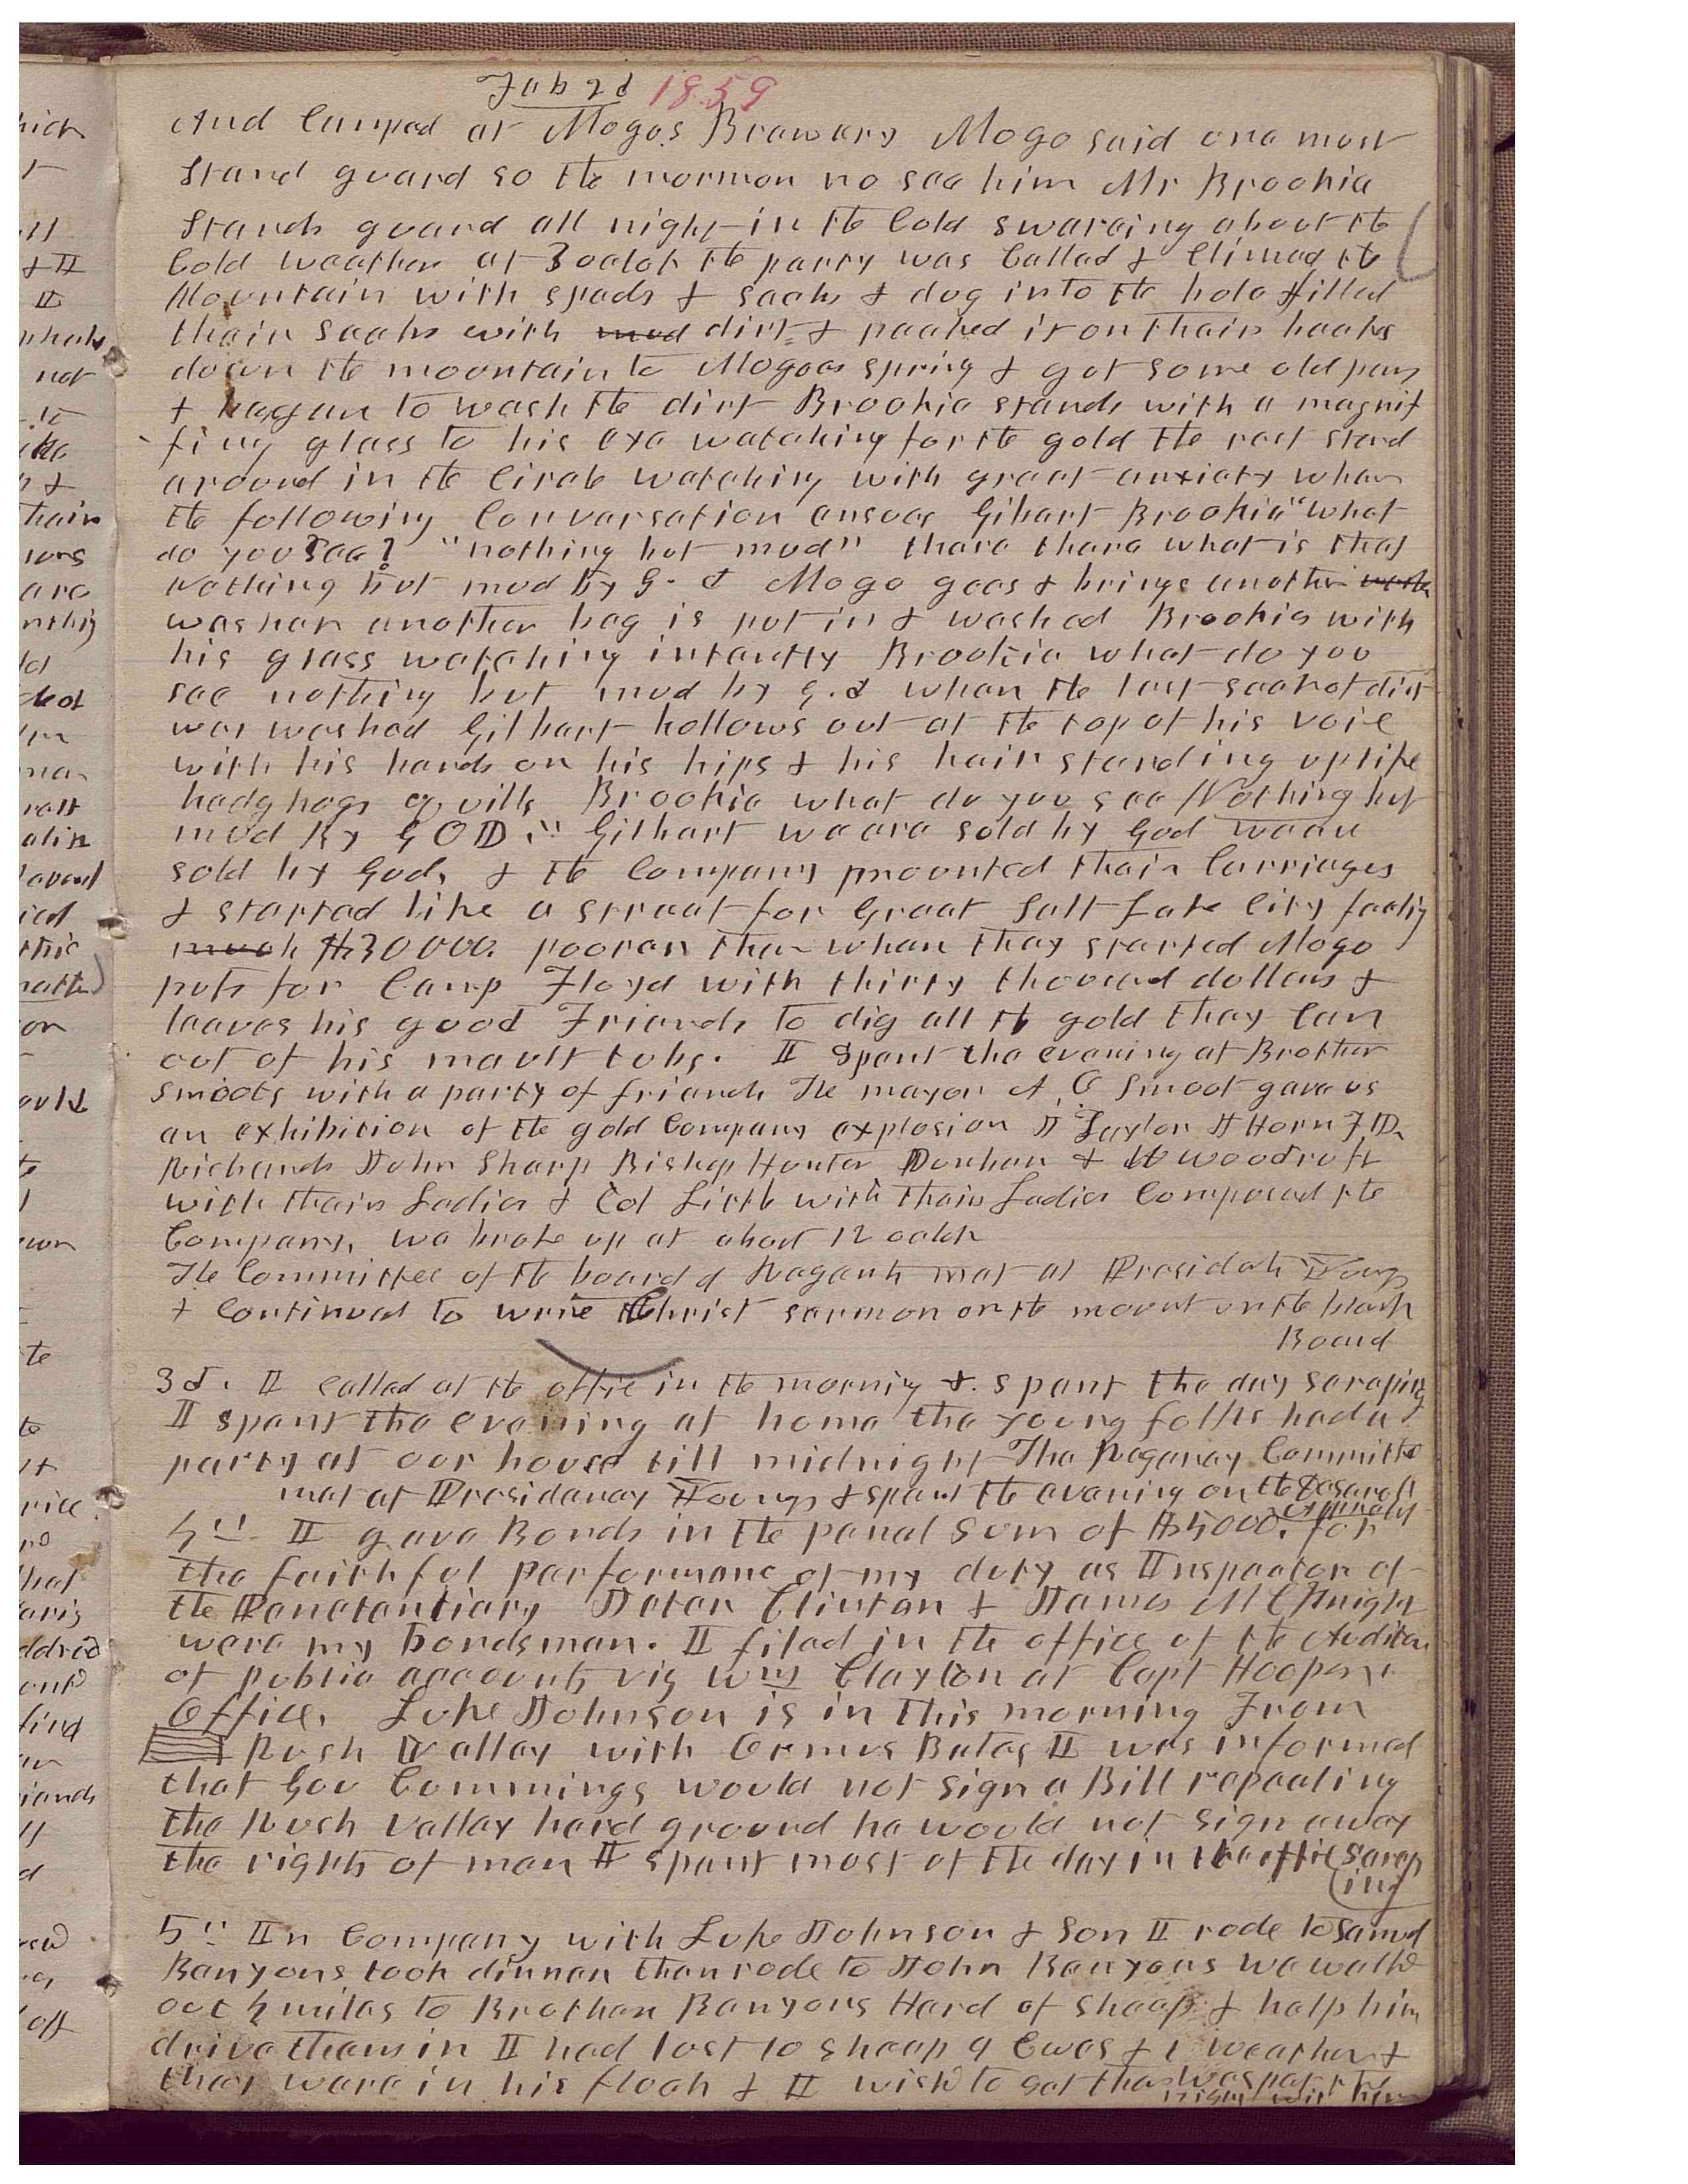 Feb 2d 1859
And Camped at Mogos Brewery Mogo said one must
stand guard so the mormon no see him Mr Brookie
stands guard all night in the Cold swareing about the
Cold weather at 3 oclok the party was Called & Climed the
Mountain with spads & sacks & dug into the hole filled
their sacks with mud dirt & packed it on their backs
down the mountain to Mogoes spring & got some old pans
& began to wash the dirt Brookie stands with a magnif
fing glass to his eye watching for the gold the rest stand
around in the Circle watching with great anxiety when
the following Conversation ensues Gilbert Brookie "what
do you see? "nothing but mud" there there what is that
Nothing but mud by G. d Mogo goes & brings another
washer another bag is put in & washed Brookie with
his glass watching intantly Brookie what do you
see nothing but mud by G.d when the last sack of dirt
was washed Gilbert hollows out at the top of his voice
with his hands on his hips & his hair standing up like
hedg hogs quills Brookie what do you see Nothing but
mud By GOD." Gilbert we are sold by God we are
sold by God, & the Company mounted their Carriages
& started like a streak for Great Salt Lake City feelig
much $30000. poorer than when they started Mogo
puts for Camp Floyd with thirty thousand dollars &
leaves his good Friends to dig all the gold they Can
out of his mault tubs. I spent the evening at Brother
Smoots with a party of friends The mayor A. O Smoot gave us
an exhibition of the gold Company explosion J Taylor J Horn F D.
Richards John Sharp Bishop Hunter Dunham & W Woodruff
with their Ladies & Col Little with their Ladies Composed the
Company, we broke up at about 12 oclok
The Committee of the board of Regents met at Presidet Youngs
& Continued to write Christ sermon on the mount on the black
Board
3d. I called at the office in the mornig & spent the day scraping
I spent the evening at home the young folks had a
party at our house till midnight The Regency Committe
met at Presidency Youngs & spent the evening on the Deseret
Alphabet
4th I gave Bonds in the penal Sum of $5000. for
the faithful performance of my duty as Inspector of
the Penetentiary Jeter Clinton & James McKnight
were my bondsman. I filed in the office of the Auditor
of public accounts viz Wm Clayton at Capt Hoopers
Office. Luke Johnson is in this morning From
Rush Valley with Ormus Bates I was informed
that Gov Cummings would not sign a Bill repealing
the Rush Valley herd ground he would not sign away
the rights of man I spent most of the day in the office Scrap
(ing
5th In Company with Luke Johnson & Son I rode to Samuel
Banyons took dinner then rode to John Banyons we walkd
out 4 miles to Brother Banyons Hard of sheep & help him
drive them in I had lost 10 sheep 9 Ewes & 1 weather &
they ware in his flock & I wishd to get them We spent the
night with him